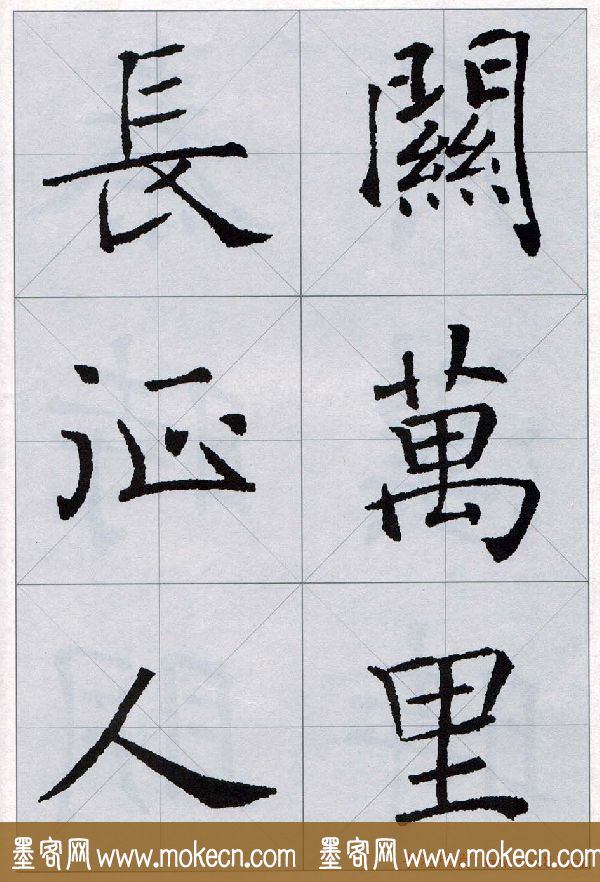 關萬里
長征人
墨客网 www.mokecn.com 墨客网 www.mokecn.com